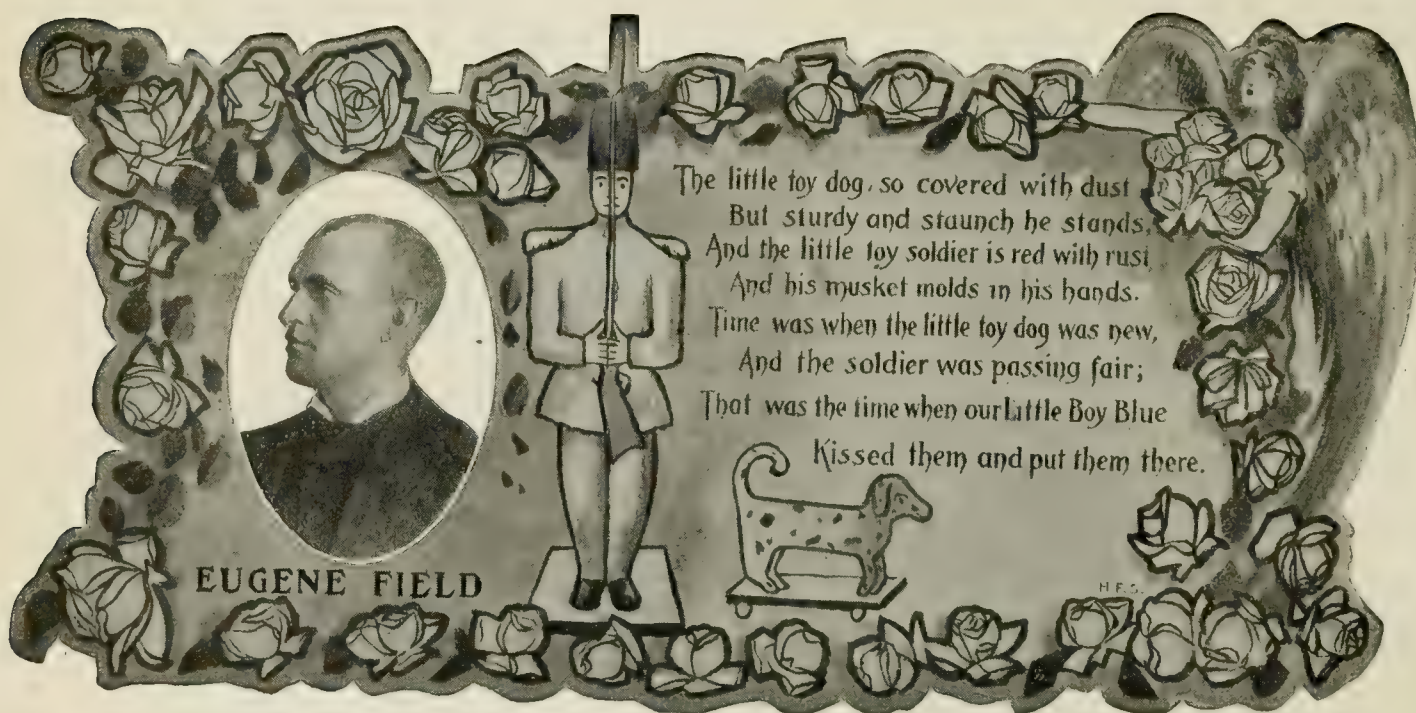 The little toy dog, so covered with dust
But sturdy and staunch he stands,
And the little toy soldier is red with rust
And his musket molds in his hands.
Time was when the little toy dog was new,
And the soldier was passing fair;
That was the time when our Little Boy Blue
Kissed them and put them there.
EUGENE FIELD